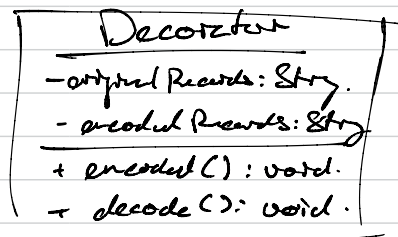 Decorator
- original Records: Strng.
- encoded Records: Strng
+ encoded() : void.
+ decode(): void.